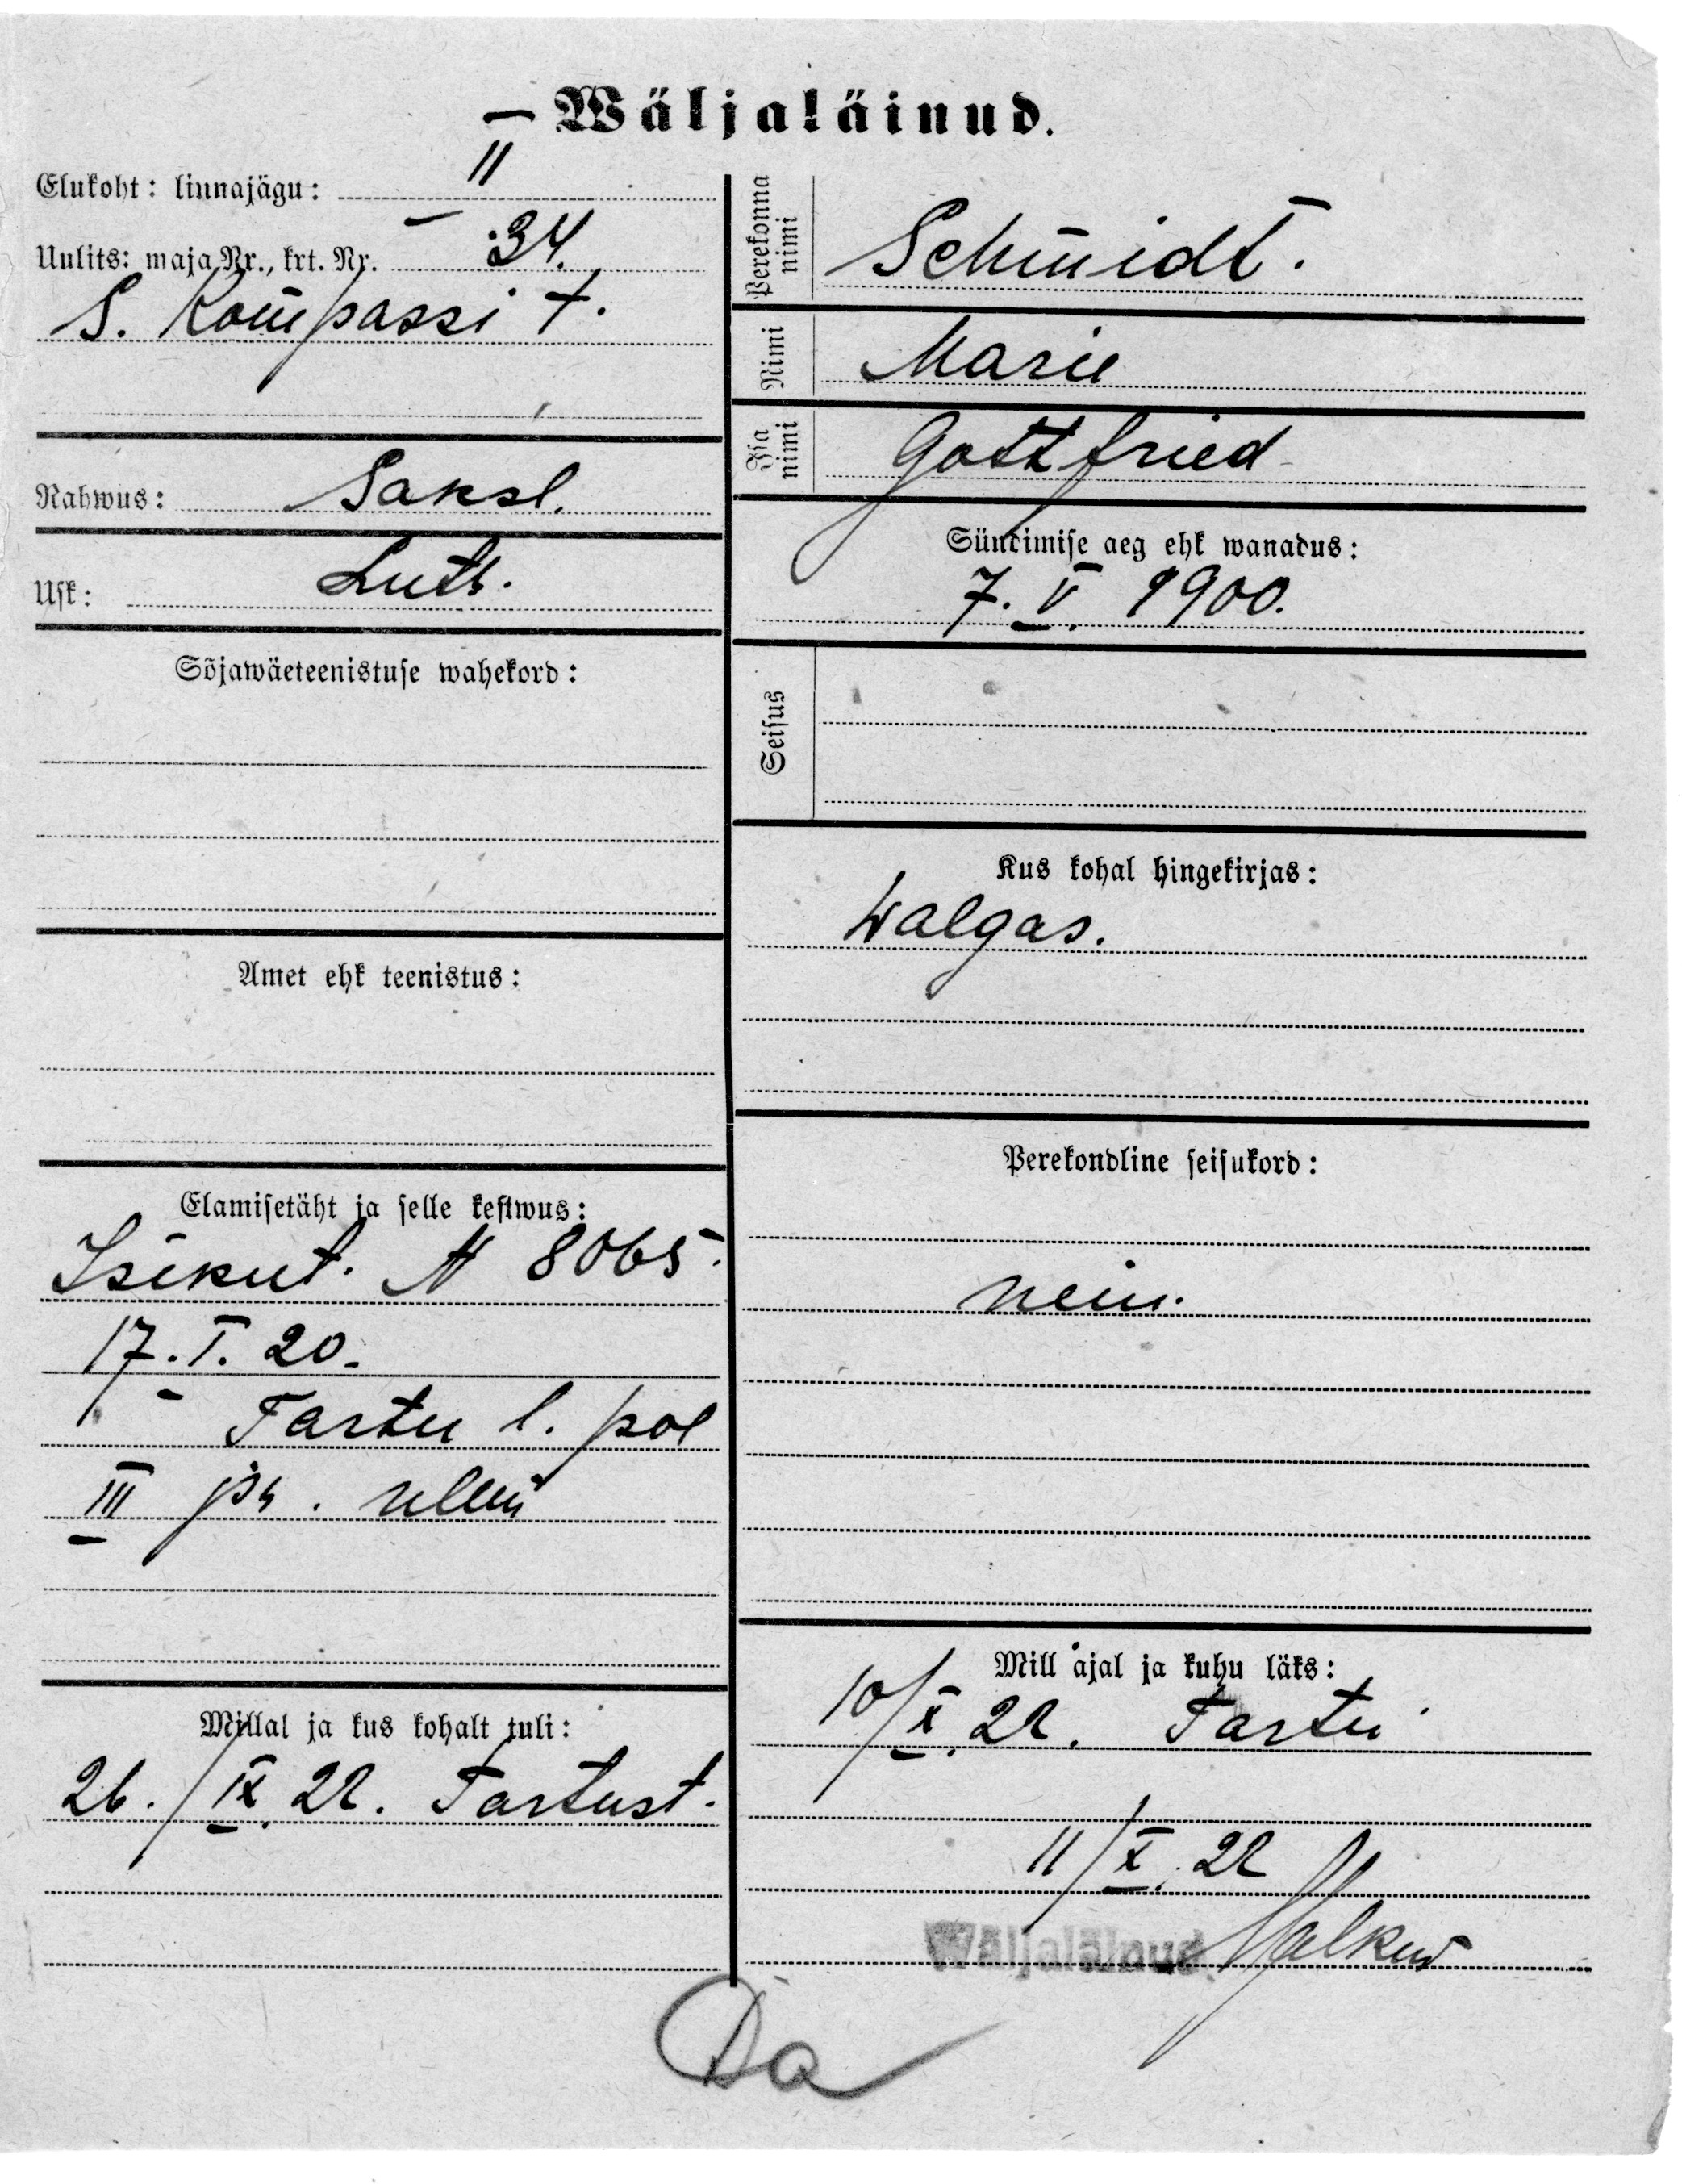 Wäljaläinud.
Elukoht: linnajägu: II
Uulits: maja Nr., krt. Nr. 34.
S. Kompassi t.
Nahwus: Saksl.
Usk: Luth.
Sõjawäeteenistuse wahekord:
Amet ehk teenistus:
Elamisetäht ja selle kestwus:
Isikut. N 8065.
17.I.20.
Tartu l. pol
III jsk. ülem
Millal ja kus kohalt tuli:
26./IX.22. Tartust.
Perekonna nimi Schmidt.
Nimi Marie
Isa nimi Gottfried
Sündimise aeg ehk wanadus:
7.V.1900.
Seisus
Kus kohal hingekirjas:
Walgas.
Perekondline seisukord:
neiu.
Mill ajal ja kuhu läks:
10/X.22. Tartu
11/X.22
Wäljaläinud.
Da